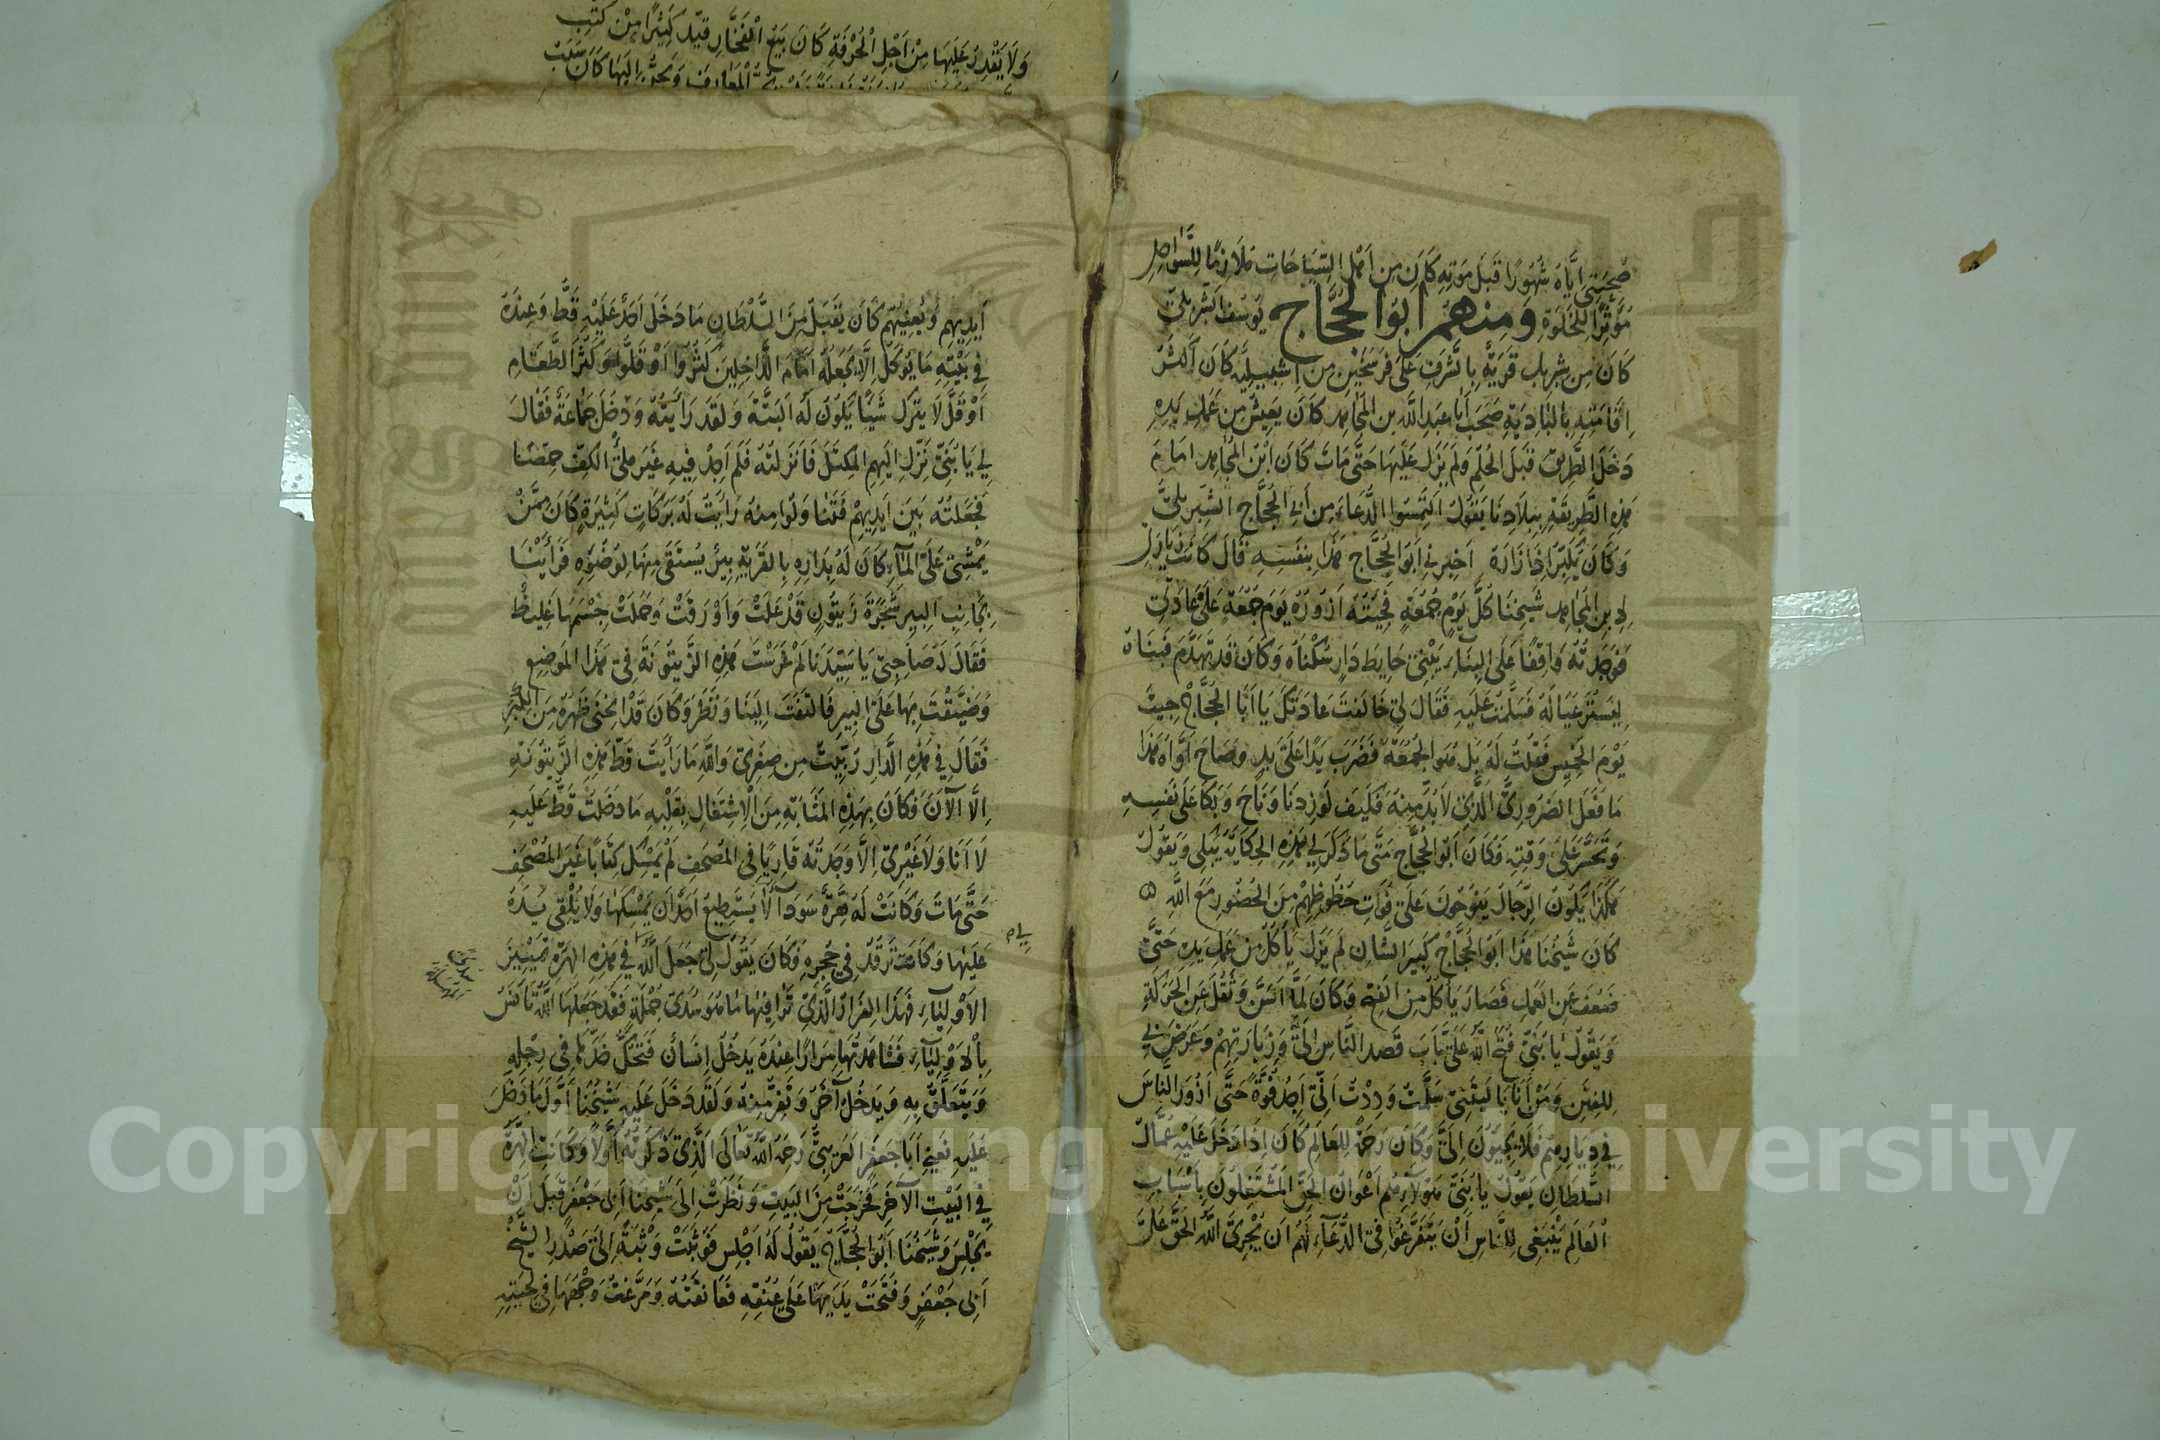 وَلَا يَقْدِرُ عَلَيْهَا مِنْ اَجْلِ الْحُرْفَةِ كَانَ يَبِيعُ الْفَخَّارِ قَيَّدَ كَثِيْرًا مِنْ كُتُبِ
الْمَعَارِفِ وَيَحِنُّ اِلَيْهَا كَانَ سَبَبُ
صُحْبَتِي اِيَّاهُ شُهُورًا قَبْلَ مَوْتِهِ كَانَ مِن اَهْلِ السِّيَاحَاتِ مُلَازِمًا لِلسَّوَاحِلِ
مُؤْثِرًا لِلْخَلْوَةِ وَمِنهُمْ اَبُو الْحُجَّاج يُوسُف الشُّبَرْبَلِيّ
كَانَ مِن شُبَرْبَل قَرْيَةٍ بِالشَّرَفِ عَلَى فَرْسَخَيْنِ مِن اِشْبِيلِيَّة كَانَ اَكْثَرُ
اِقَامَتِهِ بِالبَادِيَةِ صَحِبَ اَبَا عَبدِ اللّٰهِ بن الْمُجَاهِد كَانَ يَعِيشُ مِن عَمَلِ يَدِهِ
دَخَلَ الطَّرِيقَ قَبلَ الحُلُمِ وَلَم يَزَل عَلَيهَا حَتَّى مَاتَ كَانَ ابْنُ المُجَاهِد اِمَامَ
هٰذِهِ الطَّرِيقَةِ بِبِلَادِنَا يَقُولُ التَمِسُوا الدُّعَاءَ مِن اَبِي الْحُجَّاجِ الشُّبَرْبَلِيّ
وَكَانَ يُكَبِّرُ اِذَا زَارَهُ اَخبَرَنِي اَبُو الْحُجَّاجِ هٰذَا بِنَفسِهِ قَالَ كَانَت زِيَارَتِي
لِابنِ المُجَاهِد شَيْخِنَا كُلَّ يَوْمِ جُمُعَةٍ فَجِئتُهُ اَزُورُهُ يَومَ جُمُعَةٍ عَلَى عَادَتِي
فَوَجَدتُهُ وَاقِفًا عَلَى البِنَاءِ يَبْنِي حَايِطَ دَارِ سُكْنَاهُ وَكَانَ قَد تَهَدَّمَ فَبَنَاهُ
لِيَستُرَ عِيَالَهُ فَسَلَّمتُ عَلَيهِ فَقَالَ لِي خَالَفتَ عَادَتَكَ يَا اَبَا الْحُجَّاجِ جِيتَ
يَوْمَ الخَمِيسِ فَقُلتُ لَهُ بَل هُوَ الجُمُعَة فَضَرَبَ يَدًا عَلَى يَدٍ وَصَاحَ اَوَّاهُ هٰذَا
مَا فَعَلَ الضَرُورِيُّ الَّذِي لَا بُدَّ مِنهُ فَكَيفَ لَو زِدنَا وَنَاحَ وَبَكَا عَلَى نَفسِهِ
وَتَحَسَّرَ عَلَى وَقتِهِ وَكَانَ اَبُو الْحُجَّاجِ مَتَى مَا ذَكَرَ لِي هٰذِهِ الحِكَايَةَ يَبكِي وَيَقُولُ
هٰكَذَا يَكُونُ الرِّجَالُ يَنُوحُونَ عَلَى فَوَاتِ حُظُوظِهِم مِنَ الحُضُورِ مَعَ اللّٰهِ ۵
كَانَ شَيخُنَا هٰذَا اَبُو الْحُجَّاجِ كَبِيرَ الشَّانِ لَم يَزَل يَأكُلُ مِن عَمَلِ يَدِهِ حَتَّى
ضَعُفَ عَنِ العَمَلِ فَصَارَ يَأكُلُ مِنَ الفَتحِ وَكَانَ لَمَّا اَسَنَّ وَثَقُلَ عَنِ الحَرَكَةِ
وَيَقُولُ يَا بُنَيَّ فَتَحَ اللّٰهُ عَلَيَّ بَابَ قَصدِ النَّاسِ اِلَيَّ وَزِيَارَتِهِمْ وَعَرَّضَنِي
لِلفِتَنِ وَمَنْ اَنَا يَا لَيتَنِي سَلِمْتُ وَدِدْتُ اَنِّي اَجِدُ قُوَّةً حَتَّى اَزُورَ النَّاسَ
فِي دِيَارِهِم فَلَا يَجِيئُونَ اِلَيَّ وَكَانَ رَحمَةً لِلعَالَمِ كَانَ اِذَا دَخَلَ عَلَيْهِ عُمَّالُ
السُّلطَانِ يَقُولُ يَا بُنَيَّ هٰؤُلَاءِ هُم اَعْوَانُ الحَقِّ المُشْتَغِلُونَ بِاَسْبَابِ
الْعَالَمِ يَنْبَغِي لِلنَّاسِ اَنْ يَتَفَرَّغُوا فِي الدُّعَاءِ لَهُمْ اَن يُجْرِيَ اللّٰهُ الحَقَّ عَلَى
اَيدِيهِم وَيُعِينَهُم كَانَ يَقبَلُ مِنَ السُّلْطَانِ مَا دَخَلَ اَحَدٌ عَلَيْهِ قَطُّ وَعِندَهُ
فِي بَيْتِهِ مَا يُوكَلُ اِلَّا يَجْعَلُهُ اَمَامَ الدَّاخِلِينَ كَثُرُوا اَوْ قَلُّوا وَكَثُرَ الطَّعَامُ
اَوْ قَلَّ لَا يَترُكُ شَيْئًا يَكُونُ لَهُ اَلبَتَّةَ وَلَقَد رَاَيتُهُ وَدَخَلَ جَمَاعَةٌ فَقَالَ
لِي يَا بُنَيَّ نَزِّل اِلَيهِمِ المِكتَلَ فَاَنزَلتُهُ فَلَم اَجِدْ فِيهِ غَيرَ مِلْءِ الكَفِّ حِمَّصًا
فَجَعَلتُهُ بَيْنَ اَيدِيهِمْ فَتَنَاوَلُوا مِنهُ رَاَيتُ لَهُ بَرَكَاتٍ كَثِيرَةً كَانَ مِمَّنْ
يَمْشِي عَلَى المَاءِ كَانَ لَهُ بِدَارِهِ بِالقَرْيَةِ بِيرٌ يُسْتَقَى مِنهَا لِوُضُوءِهِ فَرَأَيْنَا
بِجَانِبِ البِيرِ شَجَرَةَ زَيتُونٍ قَدْ عَلَتْ وَاَوْرَقَتْ وَحَمَلَتْ جِسْمُهَا غَلِيظٌ
فَقَالَ لَهُ صَاحِبِي يَا سَيِّدَنَا لِمَ غَرَستَ هٰذِهِ الزَّيتُونَةَ فِي هٰذَا المَوضِعِ
وَضَيَّقْتَ بِهَا عَلَى البِيرِ فَالتَفَتَ اِلَيْنَا وَنَظَرَ وَكَانَ قَدِ انحَنَى ظَهرُهُ مِنَ الكِبَرِ
فَقَالَ فِي هٰذِهِ الدَّارِ رُبِّيتُ مِن صِغَرِي وَاللّٰهِ مَا رَاَيتُ قَطُّ هٰذِهِ الزَّيتُونَةِ
اِلَّا الْآنَ فَكَانَ بِهٰذِهِ المَثَابَةِ مِنَ الْاِشتِغَالِ بِقَلْبِهِ مَا دَخَلتُ قَطُّ عَلَيهِ
لَا اَنَا وَلَا غَيْرِي اِلَّا وَجَدتُهُ قَارِيًا فِي المُصحَفِ لَم يُمسِك كِتَابًا غَيرَ المُصْحَفِ
حَتَّى مَاتَ وَكَانَتْ لَهُ هِرَّةٌ سَودَآ لَا يَستَطِيعُ اَحَدٌ اَن يُمْسِكَهَا وَلَا يُلْقِي يَدَهُ
عَلَيْهَا وَكَانَت تَرقُدُ فِي حُجرِهِ وَكَانَ يَقُولُ لِي جَعَلَ اللّٰهُ فِي هٰذِهِ الهِرَّةِ تَمْيِيزَ
الاَوْلِيَاءِ فَهٰذَا الفِرَارُ الَّذِي تَرَا فِيهَا مَا هُوَ سُدًى جُملَةً فَقَد جَعَلَهَا اللّٰهُ تَانَسُ
بِالْاَوْلِيَاءِ فَشَاهَدتُهَا مِرَارًا عِندَهُ يَدخُلُ اِنسَانٌ فَتَحُكُّ خَدَّهَا فِي رِجْلِهِ
وَيَتَعَلَّقُ بِهِ وَيَدخُلُ آخَرُ وَتَفِرُّ مِنهُ وَلَقَد دَخَلَ عَلَيهِ شَيْخُنَا اَوَّلَ مَا دَخَلَ
عَلَيهِ نَعنِي اَبَا جَعفَرٍ العَرِينِيّ رَحِمَهُ اللّٰهُ تَعَالَى الَّذِي ذَكَرتُهُ اَوَّلًا وَكَانَتِ الهِرَّةُ
فِي البَيْتِ الآخَرِ فَخَرَجَتْ مِنَ البَيتِ وَنَظَرَتْ اِلَى شَيخِنَا اَبِي جَعْفَرٍ قَبلَ اَنْ
يَجْلِسَ وَشَيْخُنَا اَبُو الحُجَّاجِ يَقُولُ لَهُ اجلِس فَوَثَبَتْ وَثْبَةً اِلَى صَدْرِ الشَّيْخِ
اَبِي جَعْفَرٍ وَفَتَحَتْ يَدَيهَا عَلَى عُنُقِهِ فَعَانَقَتهُ وَمَرَّغَت وَجْهَهَا فِي لِحيَتِهِ
Copyright © King Saud University